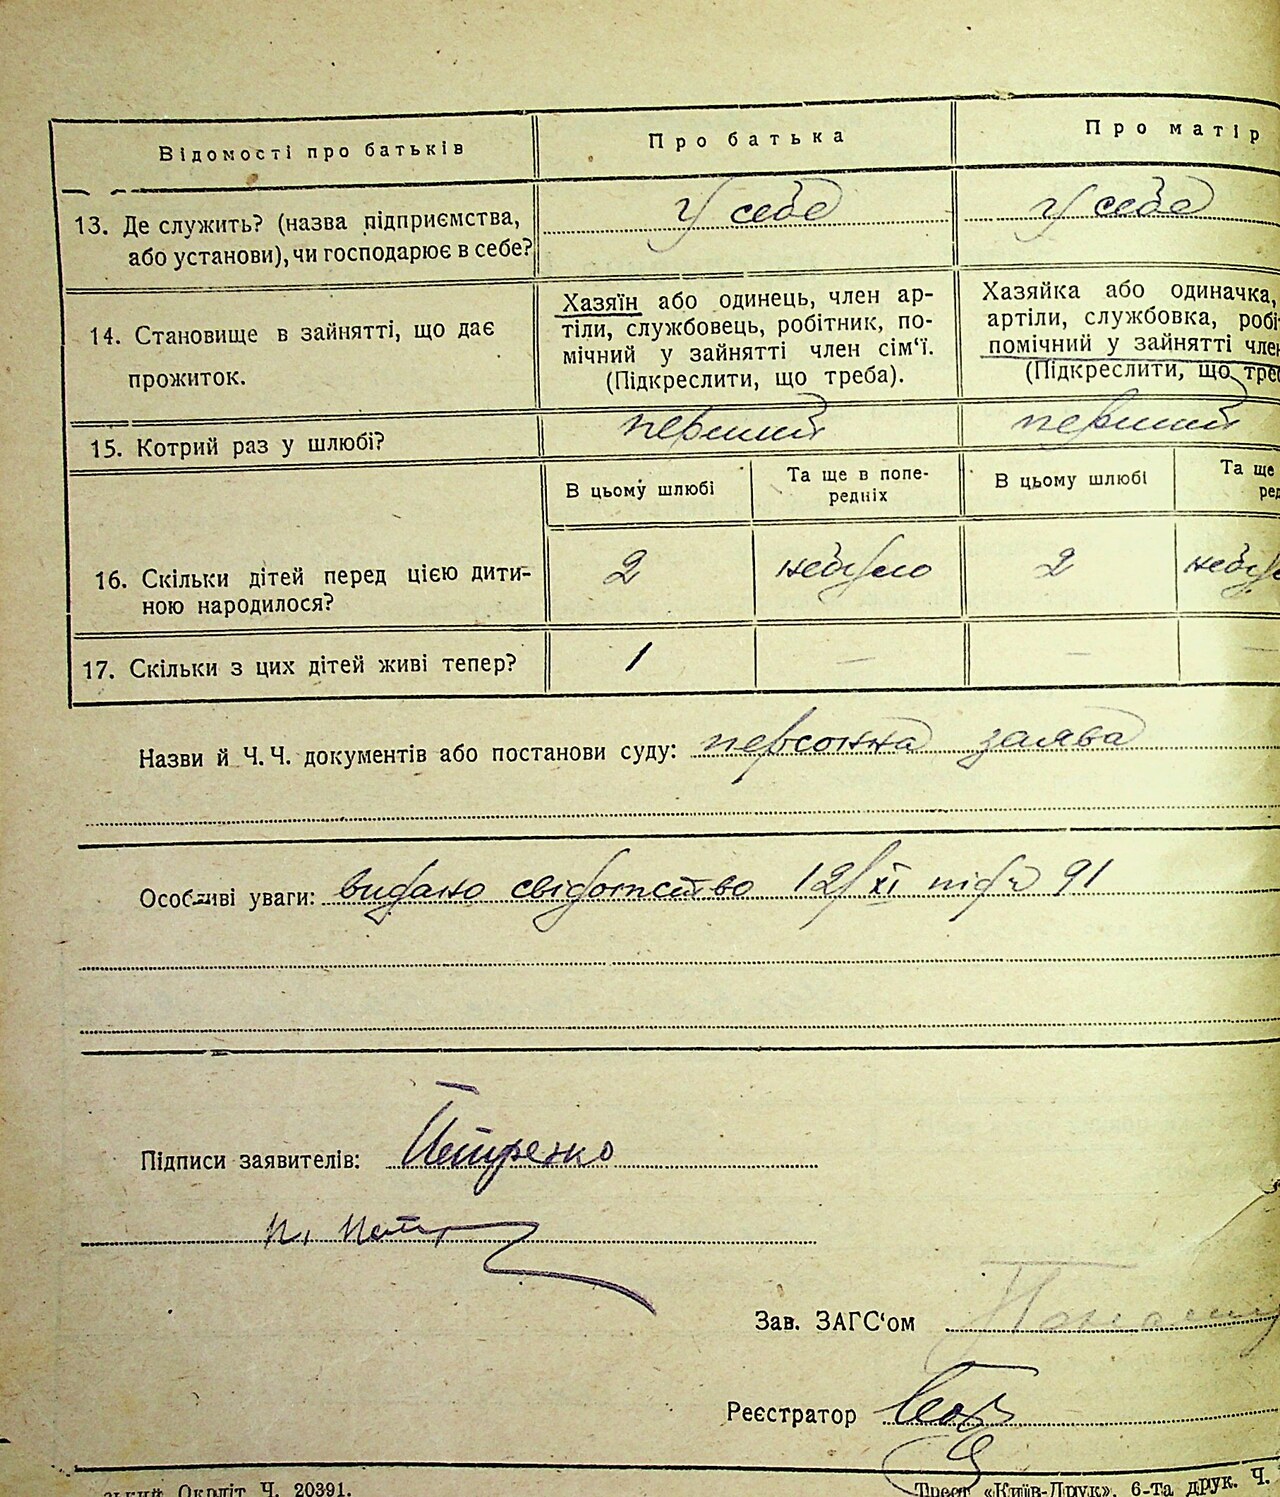 Відомості про батьків
Про батька
Про матір
13. Де служить? (назва підприємства,
або установи), чи господарює в себе?
У себе
У себе
14. Становище в зайнятті, що дає
прожиток.
Хазяїн або одинець, член ар-
тіли, службовець, робітник, по-
мічний у зайнятті член сім‘ї.
(Підкреслити, що треба).
Хазяйка або одиначка,
артіли, службовка, робі
помічний у зайнятті член
(Підкреслити, що треб
15. Котрий раз у шлюбі?
перший
перший
В цьому шлюбі
Та ще в попе-
редніх
В цьому шлюбі
Та ще
ред
16. Скільки дітей перед цією дити-
ною народилося?
2
небуло
2
небуло
17. Скільки з цих дітей живі тепер?
1
—
—
—
Назви й Ч. Ч. документів або постанови суду: персонна заява
Особливі уваги: видано свідотство 12/XI під № 91
Підписи заявителів: Петренко
П. Пет
Зав. ЗАГС‘ом
Реєстратор
ський Окрліт Ч. 20391.
Трест «Київ-Друк», 6-та друк. Ч.